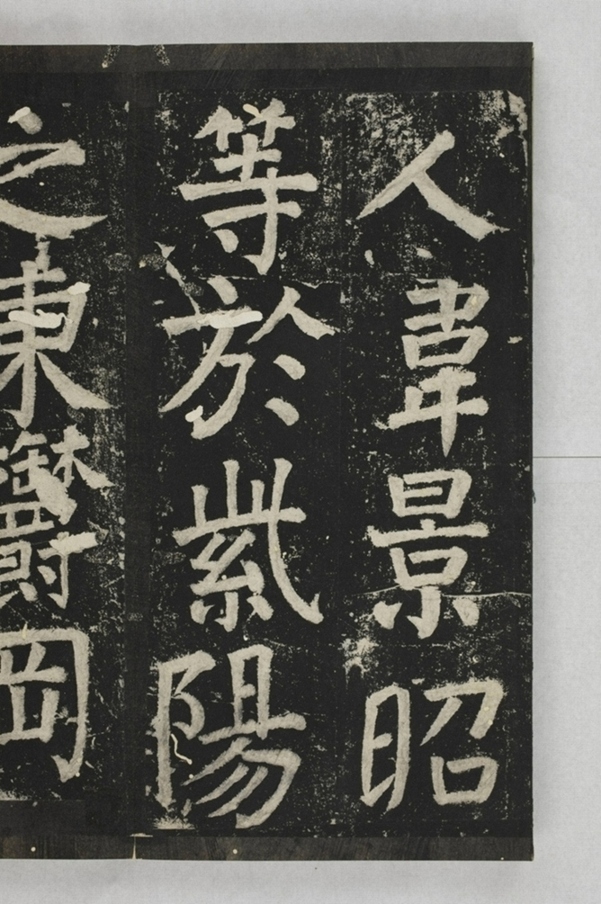 人韋景昭
等於紫陽
之東鬱岡